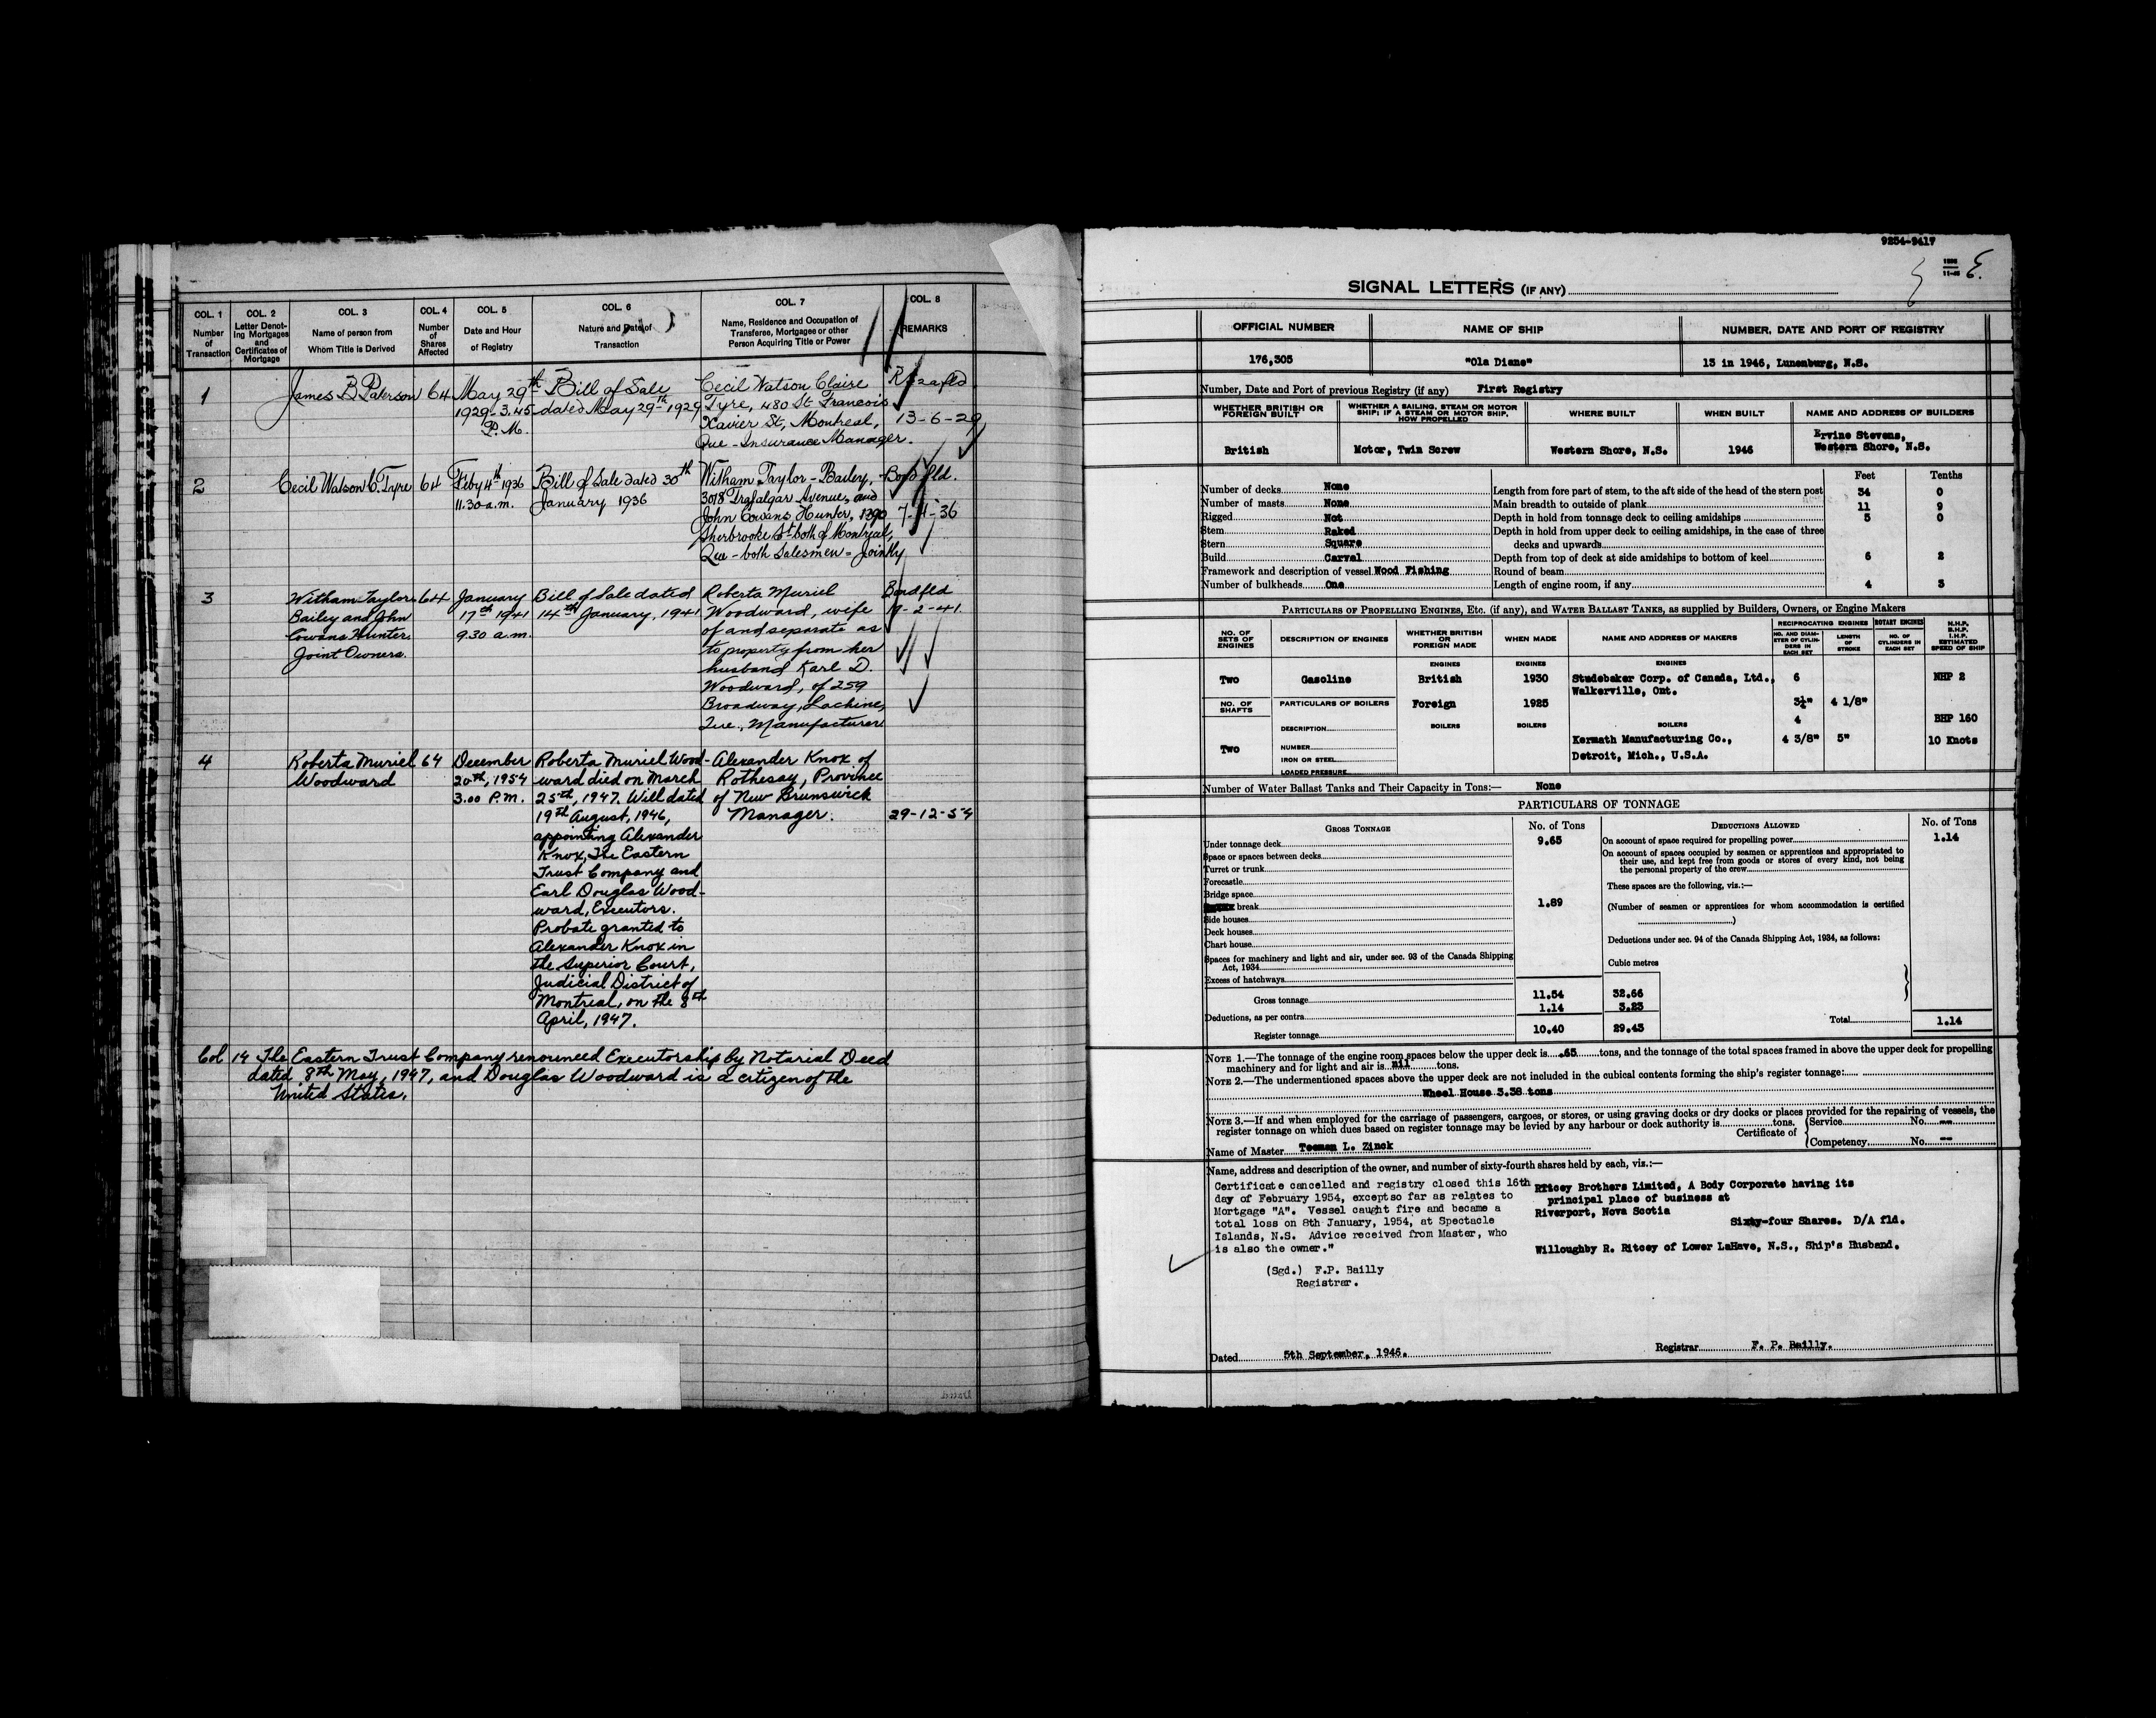 COL. 1
Number
of
Transaction
COL. 2
Letter Denot-
ing Mortgages
and
Certificates of
Mortgage
COL. 3
Name of person from
Whom Title is Derived
COL. 4
Number
of
Shares
Affected
COL. 5
Date and Hour
of Registry
COL. 6
Nature and Date of
Transaction
COL. 7
Name, Residence and Occupation of
Transferee, Mortgagee or other
Person Acquiring Title or Power
COL. 8
REMARKS
1
James B. Paterson
64
May 29th
1929-3.45
P.M.
Bill of Sale
dated May 29th 1929
Cecil Watson Claire
Tyre, 480 St Francois
Xavier St, Montreal,
Que - Insurance Manager.
13-6-29
2
Cecil Watson C. Tyre
64
Feby 4th 1936
11.30 a.m.
Bill of Sale dated 30th
January 1936
Witham Taylor-Bailey,
3018 Trafalgar Avenue, and
John Cowans Hunter, 1390
Sherbrooke St - both of Montreal,
Que - both Salesmen = Jointly
fld.
7- -36
3
Witham Taylor
Bailey and John
Cowans Hunter
Joint Owners.
64
January
17th 1941
9.30 a.m.
Bill of Sale dated
14th January, 1941
Roberta Muriel
Woodward, wife
of and separate as
to property from her
husband Karl D.
Woodward, of 259
Broadway, Lachine,
Que., Manufacturer
Bond fld
-2-41.
4
Roberta Muriel
Woodward
64
December
20th, 1954
3.00 P.M.
Roberta Muriel Wood-
ward died on March
25th, 1947. Will dated
19th August, 1946,
appointing Alexander
Knox, The Eastern
Trust Company and
Earl Douglas Wood-
ward, Executors.
Probate granted to
Alexander Knox in
the Superior Court,
Judicial District of
Montreal, on the 8th
April, 1947.
Alexander Knox of
Rothesay, Province
of New Brunswick
Manager.
29-12-54
Col 14 The Eastern Trust Company renounced Executorship by Notarial Deed
dated 8th May, 1947, and Douglas Woodward is a citizen of the
United States.
9254-9417
SIGNAL LETTERS (IF ANY)
OFFICIAL NUMBER
NAME OF SHIP
NUMBER, DATE AND PORT OF REGISTRY
176,305
"Ola Diane"
13 in 1946, Lunenburg, N.S.
Number, Date and Port of previous Registry (if any) First Registry
WHETHER BRITISH OR
FOREIGN BUILT
WHETHER A SAILING, STEAM OR MOTOR
SHIP; IF A STEAM OR MOTOR SHIP,
HOW PROPELLED
WHERE BUILT
WHEN BUILT
NAME AND ADDRESS OF BUILDERS
British
Motor, Twin Screw
Western Shore, N.S.
1946
Ervine Stevens,
Western Shore, N.S.
Feet
Tenths
Number of decks None
Number of masts None
Rigged Not
Stem Raked
Stern Square
Build Carvel
Framework and description of vessel Wood Fishing
Number of bulkheads One
Length from fore part of stem, to the aft side of the head of the stern post 34 0
Main breadth to outside of plank 11 9
Depth in hold from tonnage deck to ceiling amidships 5 0
Depth in hold from upper deck to ceiling amidships, in the case of three
decks and upwards
Depth from top of deck at side amidships to bottom of keel 6 2
Round of beam
Length of engine room, if any 4 3
PARTICULARS OF PROPELLING ENGINES, ETC. (if any), and WATER BALLAST TANKS, as supplied by Builders, Owners, or Engine Makers
NO. OF
SETS OF
ENGINES
DESCRIPTION OF ENGINES
WHETHER BRITISH
OR
FOREIGN MADE
WHEN MADE
NAME AND ADDRESS OF MAKERS
RECIPROCATING ENGINES
NO. AND DIAM-
ETER OF CYLIN-
DERS IN
EACH SET
LENGTH
OF
STROKE
ROTARY ENGINES
NO. OF
CYLINDERS IN
EACH SET
N.H.P.
B.H.P.
I.H.P.
ESTIMATED
SPEED OF SHIP
ENGINES
ENGINES
ENGINES
Two
Gasoline
British
1930
Studebaker Corp. of Canada, Ltd.,
Walkerville, Ont.
6
NHP 2
NO. OF
SHAFTS
PARTICULARS OF BOILERS
Foreign
1925
3¼"
4 1/8"
DESCRIPTION
BOILERS
BOILERS
BOILERS
4
BHP 160
Two
NUMBER
IRON OR STEEL
LOADED PRESSURE
Kermath Manufacturing Co.,
Detroit, Mich., U.S.A.
4 3/8"
5"
10 Knots
Number of Water Ballast Tanks and Their Capacity in Tons:— None
PARTICULARS OF TONNAGE
GROSS TONNAGE
No. of Tons
DEDUCTIONS ALLOWED
No. of Tons
Under tonnage deck 9.65
Space or spaces between decks
Turret or trunk
Forecastle
Bridge space
break 1.89
Side houses
Deck houses
Chart house
Spaces for machinery and light and air, under sec. 93 of the Canada Shipping
Act, 1934
Excess of hatchways
Gross tonnage 11.54 32.66
Deductions, as per contra 1.14 3.23
Register tonnage 10.40 29.43
On account of space required for propelling power 1.14
On account of spaces occupied by seamen or apprentices and appropriated to
their use, and kept free from goods or stores of every kind, not being
the personal property of the crew
These spaces are the following, viz.:—
(Number of seamen or apprentices for whom accommodation is certified
)
Deductions under sec. 94 of the Canada Shipping Act, 1934, as follows:
Cubic metres
Total 1.14
NOTE 1.—The tonnage of the engine room spaces below the upper deck is .65 tons, and the tonnage of the total spaces framed in above the upper deck for propelling
machinery and for light and air is nil tons.
NOTE 2.—The undermentioned spaces above the upper deck are not included in the cubical contents forming the ship's register tonnage:
Wheel House 3.38 tons
NOTE 3.—If and when employed for the carriage of passengers, cargoes, or stores, or using graving docks or dry docks or places provided for the repairing of vessels, the
register tonnage on which dues based on register tonnage may be levied by any harbour or dock authority is tons.
Certificate of
Service No. --
Competency No. --
Name of Master Teeman L. Zinck
Name, address and description of the owner, and number of sixty-fourth shares held by each, viz.:—
Certificate cancelled and registry closed this 16th
day of February 1954, except so far as relates to
Mortgage "A". Vessel caught fire and became a
total loss on 8th January, 1954, at Spectacle
Islands, N.S. Advice received from Master, who
is also the owner."
(Sgd.) F.P. Bailly
Registrar.
Ritcey Brothers Limited, A Body Corporate having its
principal place of business at
Riverport, Nova Scotia
Sixty-four Shares. D/A fld.
Willoughby R. Ritcey of Lower LaHave, N.S., Ship's Husband.
Dated 5th September, 1946.
Registrar F. P. Bailly.